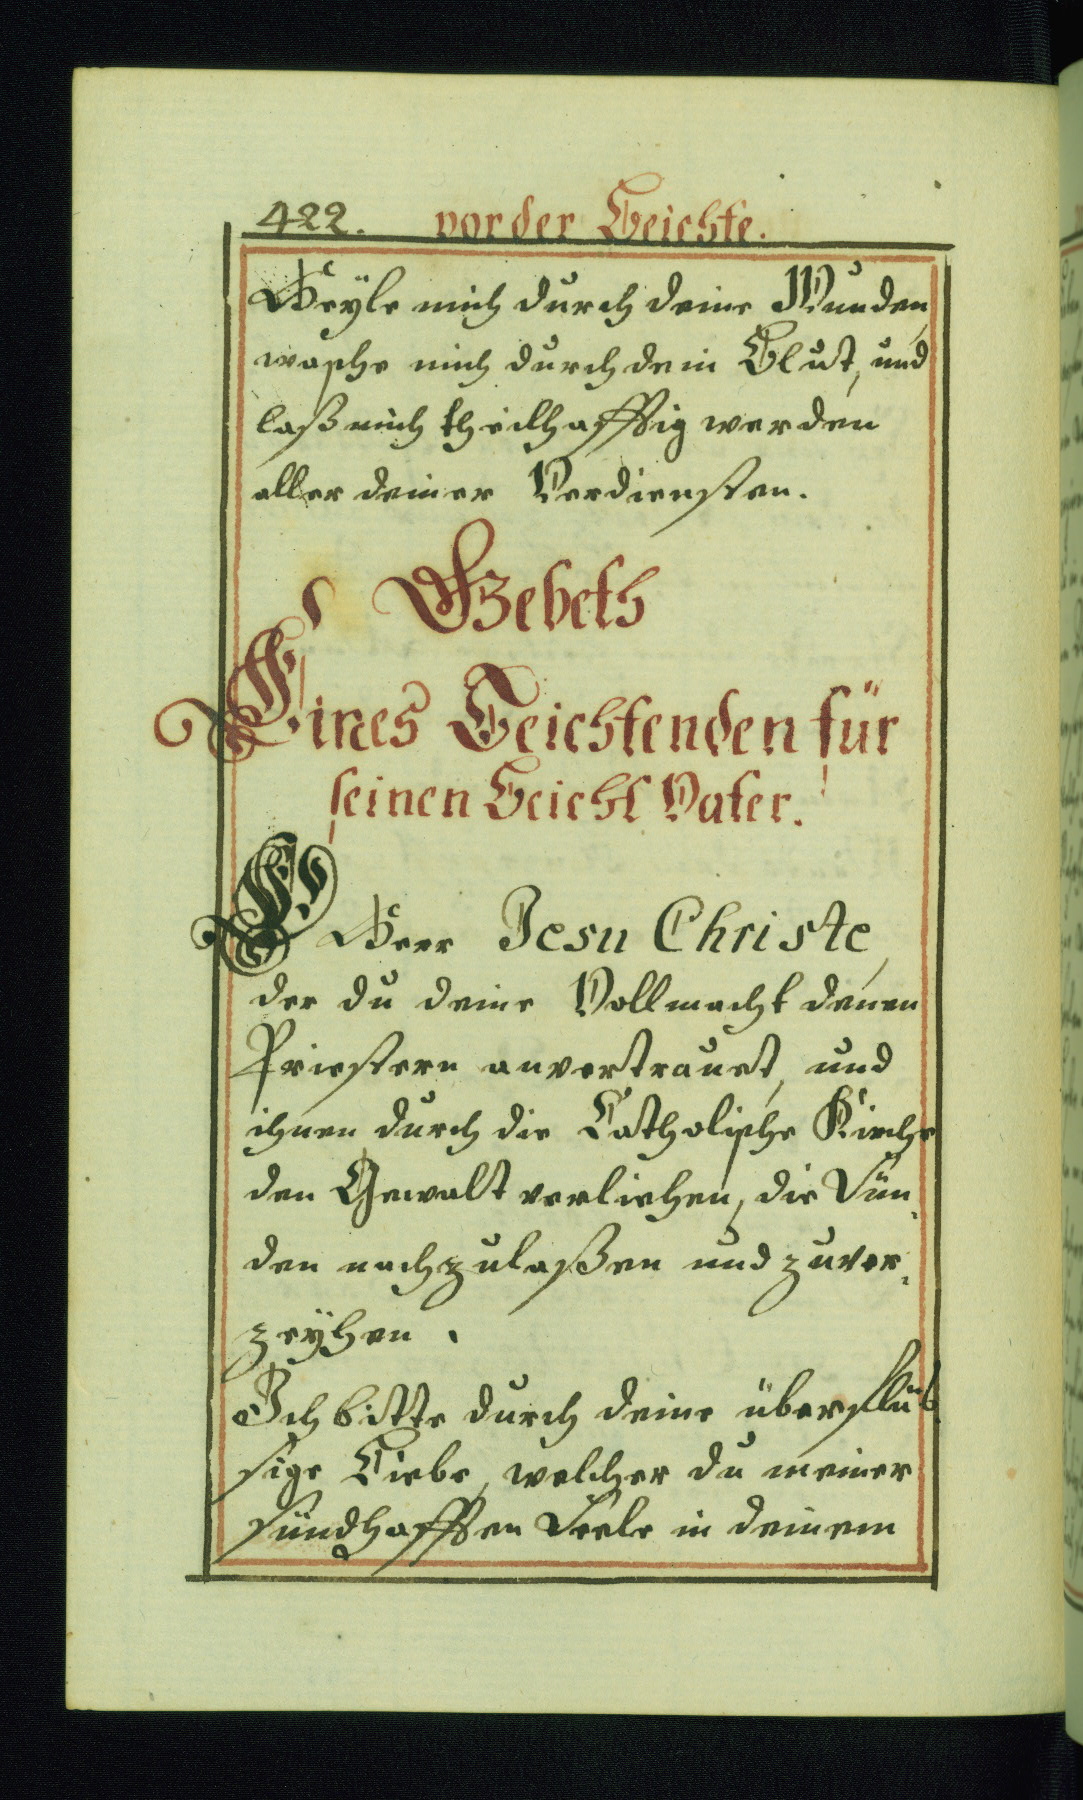 422. vor der Beichte.
Heyle mich durch deine Wunden,
wasche mich durch dein Blut, und
laß mich theilhafftig werden
aller deiner Verdiensten.
Gebeth
Eines Beichtenden für
seinen Beicht Vater.
O Herr Jesu Christe,
der du deine Vollmacht denen
Priestern anvertrauet, und
ihnen durch die Catholische Kirche
den Gewalt verliehen, die Sün-
den nachzulaßen und zuver-
zeyhen.
Ich bitte durch deine überflüs-
sige Liebe, welcher du meiner
sündhafften Seele in deinem